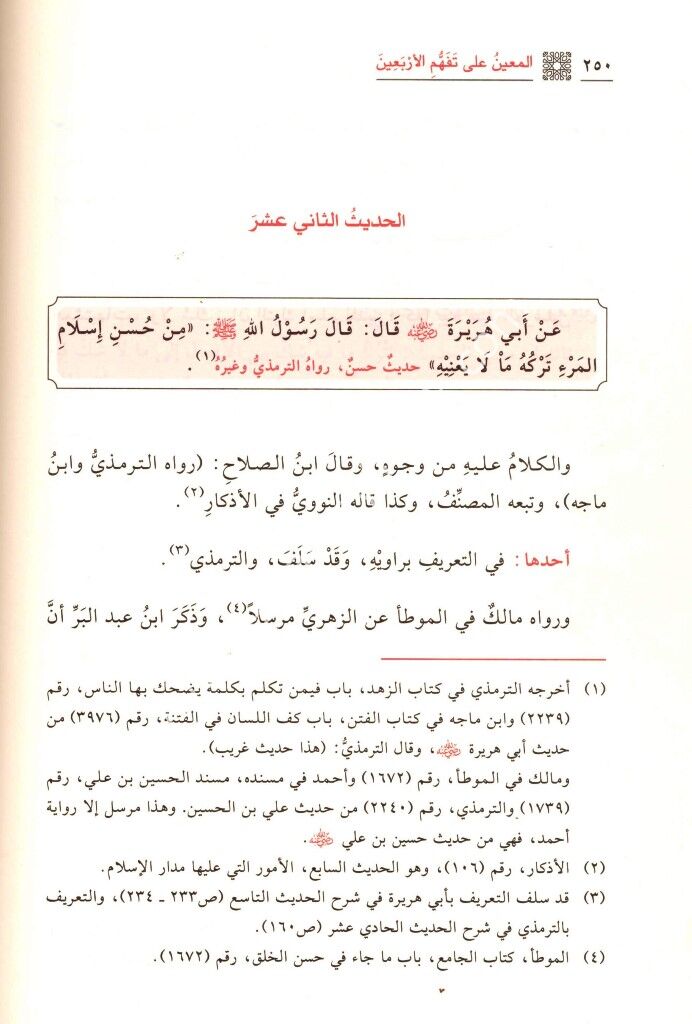 ٢٥٠ المعينُ على تَفَهُّمِ الأرْبَعِينَ
الحديثُ الثاني عشرَ
عَنْ أَبي هُرَيْرَةَ ﵁ قَالَ: قَالَ رَسُوْلُ اللهِ ﷺ: «مِنْ حُسْنِ إِسْلَامِ
المَرْءِ تَرْكُهُ مَاْ لَا يَعْنِيْهِ» حديثٌ حسنٌ، رواهُ الترمذيُّ وغيرُهُ(١).
والكلامُ عليهِ من وجوهٍ، وقالَ ابنُ الصلاحِ: (رواه الترمذيُّ وابنُ
ماجه)، وتبعه المصنِّفُ، وكذا قاله النوويُّ في الأذكارِ(٢).
أحدها: في التعريفِ براويْهِ، وَقَدْ سَلَفَ، والترمذي(٣).
ورواه مالكٌ في الموطأ عن الزهريِّ مرسلاً(٤)، وَذَكَرَ ابنُ عبد البَرِّ أنَّ
(١) أخرجه الترمذي في كتاب الزهد، باب فيمن تكلم بكلمة يضحك بها الناس، رقم
(٢٢٣٩) وابن ماجه في كتاب الفتن، باب كف اللسان في الفتنة، رقم (٣٩٧٦) من
حديث أبي هريرة ﵁، وقال الترمذيُّ: (هذا حديث غريب).
ومالك في الموطأ، رقم (١٦٧٢) وأحمد في مسنده، مسند الحسين بن علي، رقم
(١٧٣٩) والترمذي، رقم (٢٢٤٠) من حديث علي بن الحسين. وهذا مرسل إلا رواية
أحمد، فهي من حديث حسين بن علي ﵁.
(٢) الأذكار، رقم (١٠٦)، وهو الحديث السابع، الأمور التي عليها مدار الإسلام.
(٣) قد سلف التعريف بأبي هريرة في شرح الحديث التاسع (ص٢٣٣ ـ ٢٣٤)، والتعريف
بالترمذي في شرح الحديث الحادي عشر (ص١٦٠).
(٤) الموطأ، كتاب الجامع، باب ما جاء في حسن الخلق، رقم (١٦٧٢).